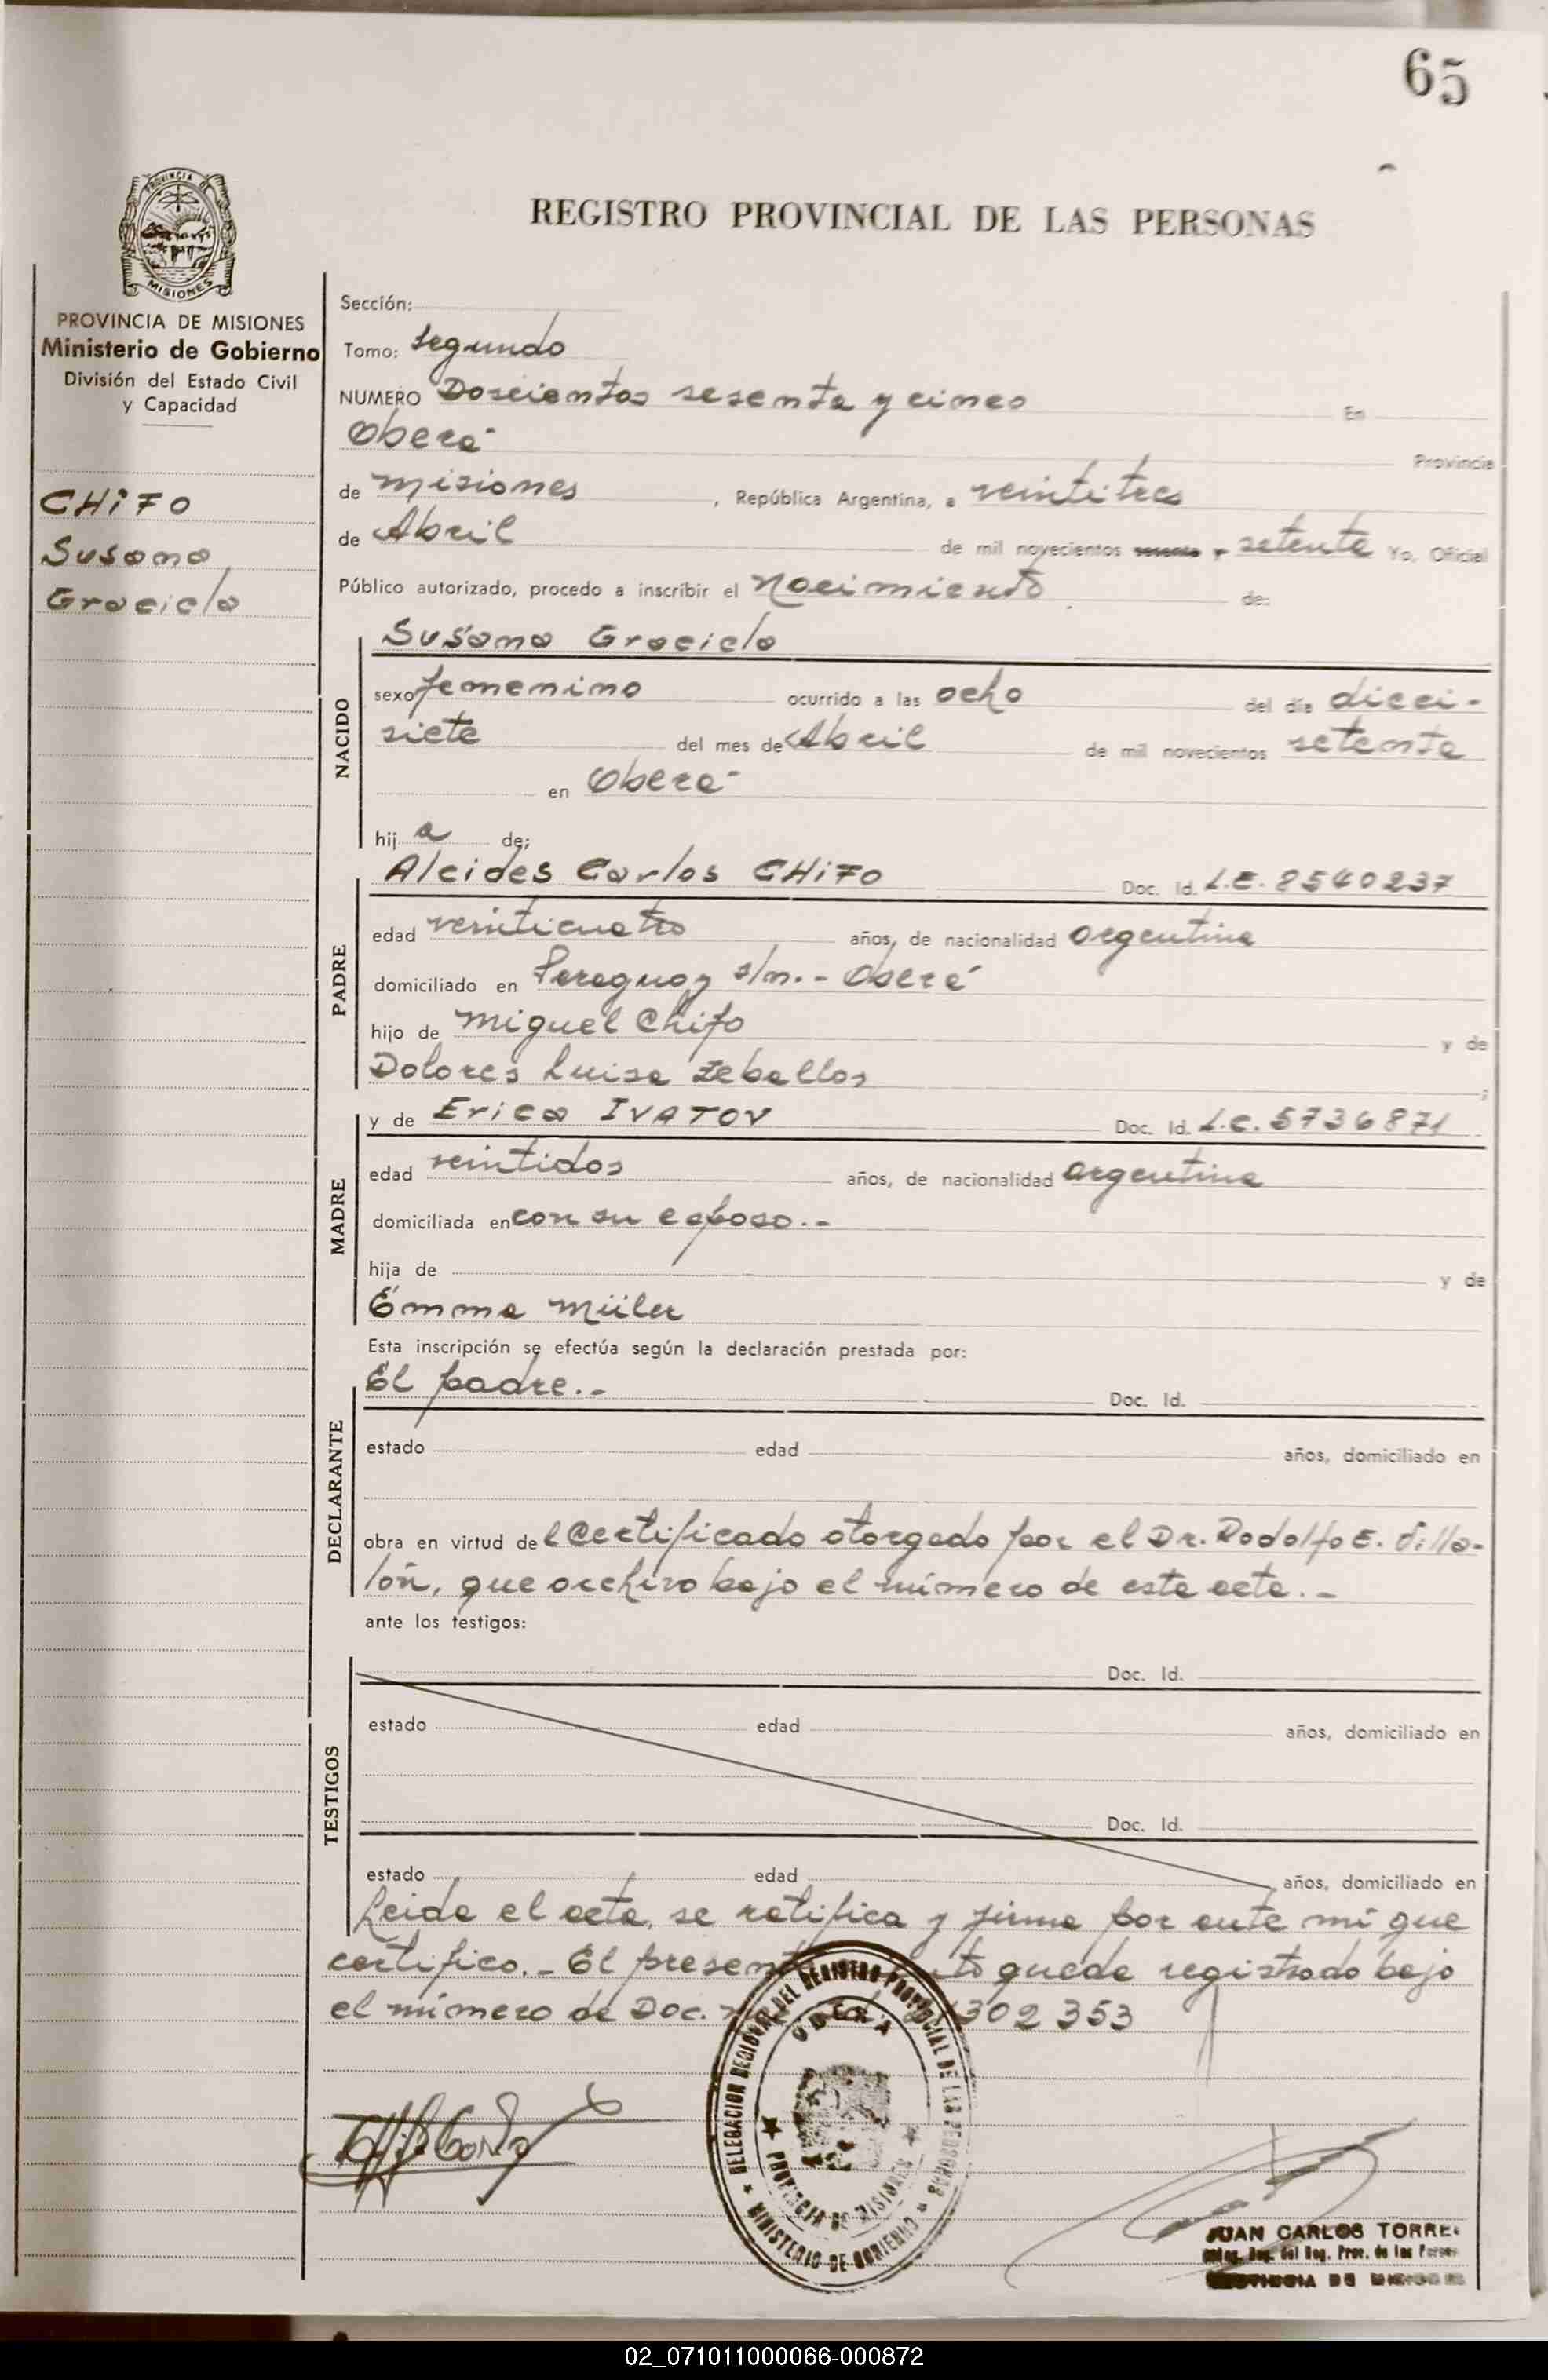 65
REGISTRO PROVINCIAL DE LAS PERSONAS
PROVINCIA DE MISIONES
PROVINCIA DE MISIONES
Ministerio de Gobierno
División del Estado Civil
y Capacidad
CHIFO
Susana
Graciela
Sección:
Tomo: Segundo
NUMERO Doscientos sesenta y cinco En
Oberá Provincia
de Misiones , República Argentina, a veintitres
de Abril de mil novecientos sesenta y setenta Yo, Oficial
Público autorizado, procedo a inscribir el Nacimiento de:
NACIDO
Susana Graciela
sexo femenino ocurrido a las ocho del día dieci-
siete del mes de Abril de mil novecientos setenta
en Oberá
hij a de;
PADRE
Alcides Carlos CHIFO Doc. Id. L.E. 8540237
edad veinticuatro años, de nacionalidad argentina
domiciliado en Paraguay s/n.- Oberá
hijo de Miguel Chifo y de
Dolores Luisa Zeballos ;
MADRE
y de Erica IVATOV Doc. Id. L.C. 5736871
edad veintidos años, de nacionalidad argentina
domiciliada en con su esposo.-
hija de y de
Emma Müler
Esta inscripción se efectúa según la declaración prestada por:
DECLARANTE
El padre.- Doc. Id.
estado edad años, domiciliado en
obra en virtud de l Certificado otorgado por el Dr. Rodolfo E. Villa-
lón, que archivo bajo el número de esta acta.-
ante los testigos:
TESTIGOS
Doc. Id.
estado edad años, domiciliado en
Doc. Id.
estado edad años, domiciliado en
Leida el acta, se ratifica y firma por ante mí que
certifico.- El presente queda registrado bajo
el número de Doc. 302353
DELEGACION REGIONAL DEL REGISTRO PROVINCIAL DE LAS PERSONAS
OBERA
PROVINCIA DE MISIONES
MINISTERIO DE GOBIERNO
JUAN CARLOS TORRE
del Reg. Prov. de las Person
PROVINCIA DE MISIONES
02_071011000066-000872